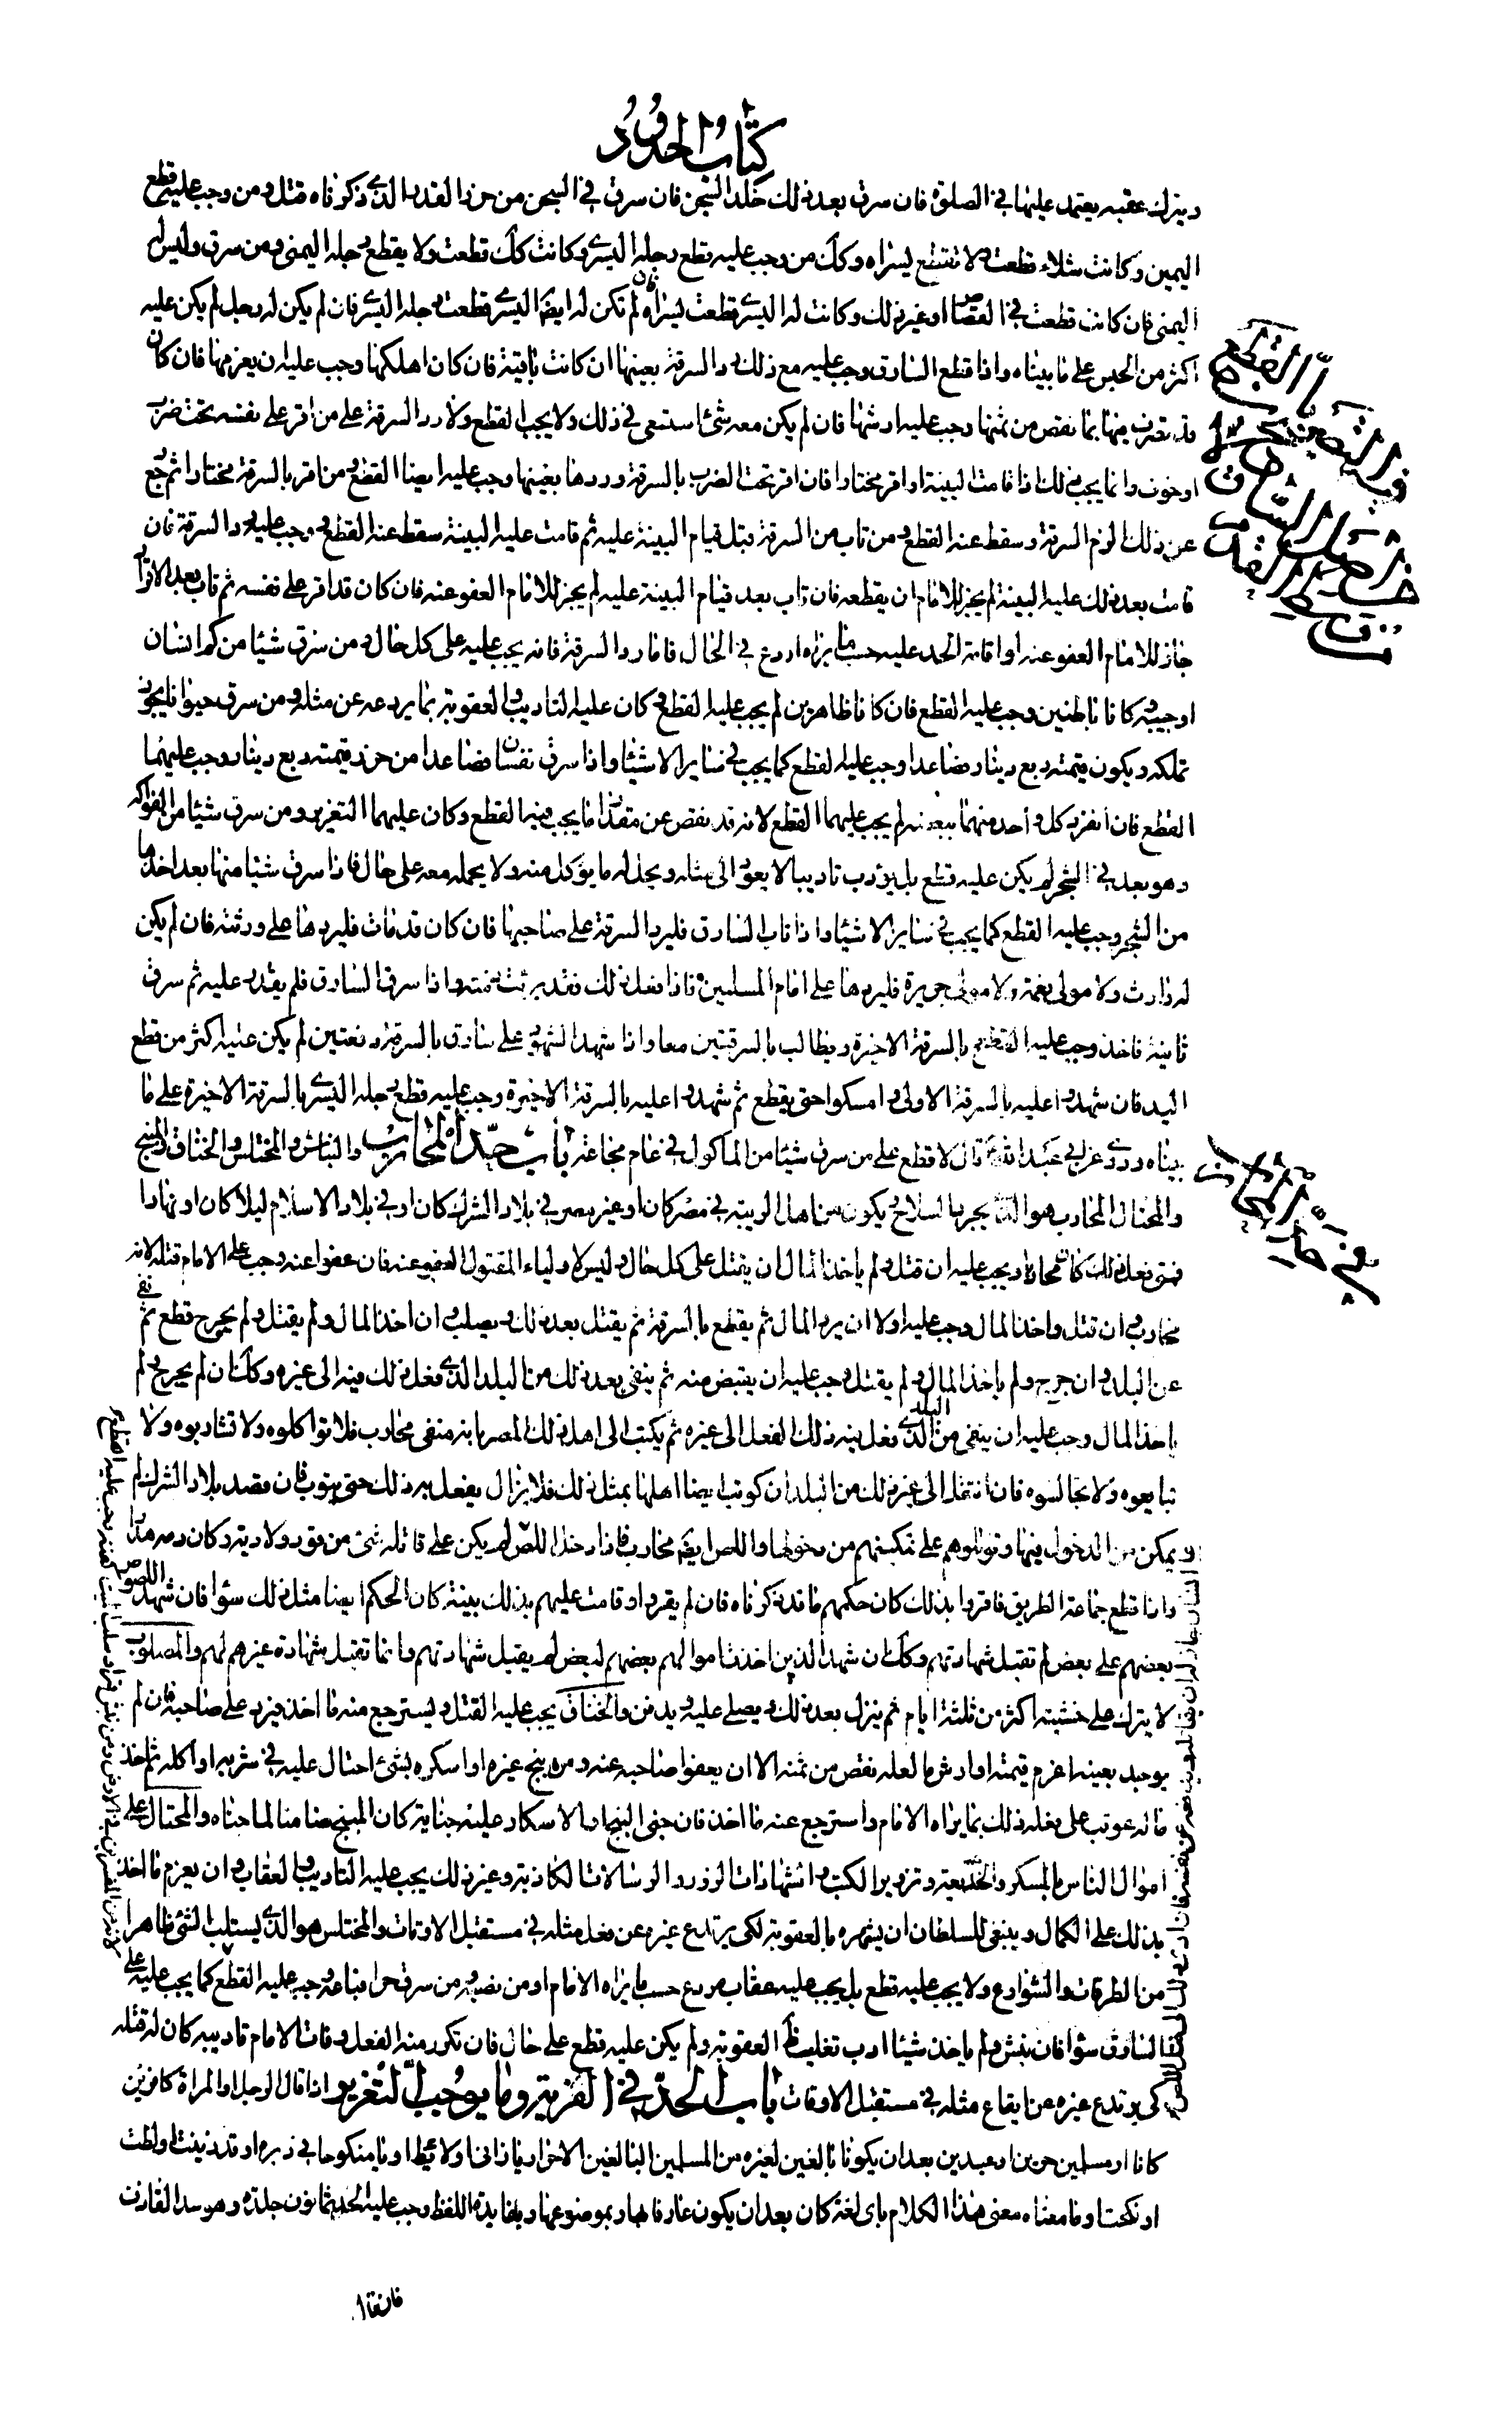 كتاب الحدود
ويترك عقبه يعتمد عليها في الصلوة فان سرق بعد ذلك خلد السجن فان سرق في السجن من حرز القدر الذي ذكرناه قتل ومن وجب عليه قطع
اليمين وكانت شلاء قطعت ولا تقطع يسراه وكك من وجب عليه قطع رجله اليسرى وكانت كك قطعت ولا يقطع رجله اليمنى ومن سرق وليس له
اليمنى فان كانت قطعت في القصاص او غير ذلك وكانت له اليسرى قطعت يسراه فان لم تكن له ايضا اليسرى قطعت رجله اليسرى فان لم يكن له رجل لم يكن عليه
اكثر من الحبس على ما بيناه واذا قطع السارق وجب عليه مع ذلك رد السرقة بعينها ان كانت باقية فان كان اهلكها وجب عليه ان يغرمها فان كان
قد تصرف فيها بما نقص من ثمنها وجب عليه ارشها فان لم يكن معه شئ استسعى في ذلك ولا يجب القطع ولا رد السرقة على من اقر على نفسه تحت ضرب
او خوف وانما يجب ذلك اذا قامت البينة او اقر مختارا فان اقر تحت الضرب بالسرقة وردها بعينها وجب عليه ايضا القطع ومن اقر بالسرقة مختارا ثم رجع
عن ذلك الزم السرقة وسقط عنه القطع ومن تاب من السرقة قبل قيام البينة عليه ثم قامت عليه البينة سقط عنه القطع ووجب عليه رد السرقة فان
قامت بعد ذلك عليه البينة لم يجز للامام ان يقطعه فان تاب بعد قيام البينة عليه لم يجز للامام العفو عنه فان كان قد اقر على نفسه ثم تاب بعد الاقرار
جاز للامام العفو عنه او اقامة الحد عليه حسب ما يراه اردع في الحال فاما رد السرقة فانه يجب عليه على كل حال ومن سرق شيئا من كم انسان
او جيبه وكانا باطنين وجب عليه القطع فان كانا ظاهرين لم يجب عليه القطع وكان عليه التاديب والعقوبة بما يردعه عن مثله ومن سرق حيوانا يجوز
تملكه ويكون قيمته ربع دينار فصاعدا وجب عليه القطع كما يجب في سائر الاشياء واذا سرق نفسان فصاعدا من حرز قيمته ربع دينار وجب عليهما
القطع فان انفرد كل واحد منهما ببعضه لم يجب عليهما القطع لانه قد نقص عن مقدار ما يجب فيه القطع وكان عليهما التعزير ومن سرق شيئا من الفواكه
وهو بعد في الشجر لم يكن عليه قطع بل يؤدب تاديبا لا يعود الى مثله ويحل له ما يؤكل منه ولا يحمله معه على حال فاذا سرق شيئا منها بعد اخذها
من الشجر وجب عليه القطع كما يجب في سائر الاشياء واذا تاب السارق فليرد السرقة على صاحبها فان كان قد مات فليردها على ورثته فان لم يكن
له وارث ولا مولى نعمة ولا مولى جريرة فليردها على امام المسلمين فاذا فعل ذلك فقد برئت ذمته واذا سرق السارق فلم يقدر عليه ثم سرق
ثانية فاخذ وجب عليه القطع بالسرقة الاخيرة ويطالب بالسرقتين معا واذا شهد الشهود على سارق بالسرقة دفعتين لم يكن عليه اكثر من قطع
اليد فان شهدوا عليه بالسرقة الاولى وامسكوا حتى يقطع ثم شهدوا عليه بالسرقة الاخيرة وجب عليه قطع رجله اليسرى بالسرقة الاخيرة على ما
بيناه وروي عن ابي عبد الله ع قال لا قطع على من سرق شيئا من الماكول في عام مجاعة باب حد المحارب والنباش والمختلس والخناق والمبنج
والمحتال المحارب هو الذي يجر السلاح ويكون من اهل الريبة في مصر كان او غير مصر في بلاد الشرك كان او في بلاد الاسلام ليلا كان او نهارا
فمتى فعل ذلك كان محاربا ويجب عليه ان قتل ولم ياخذ المال ان يقتل على كل حال وليس لاولياء المقتول العفو عنه فان عفوا عنه وجب على الامام قتله لانه
محارب وان قتل واخذ المال وجب عليه اولا ان يرد المال ثم يقطع بالسرقة ثم يقتل بعد ذلك ويصلب وان اخذ المال ولم يقتل ولم يجرح قطع ثم نفى
عن البلد وان جرح ولم ياخذ المال ولم يقتل وجب عليه ان يقتص منه ثم ينفى بعد ذلك من البلد الذي فعل ذلك فيه الى غيره وكك ان لم يجرح ولم
ياخذ المال وجب عليه ان ينفى من البلد الذي فعل فيه ذلك الفعل الى غيره ثم يكتب الى اهل ذلك المصر بانه منفى محارب فلا تواكلوه ولا تشاربوه ولا
تبايعوه ولا تجالسوه فان انتقل الى غير ذلك من البلدان كوتب ايضا اهلها بمثل ذلك فلا يزال يفعل به ذلك حتى يتوب فان قصد بلاد الشرك لم
يمكن من الدخول فيها وقوتلوهم على تمكينهم من دخولها واللص ايضا محارب فاذا دخل اللص لم يكن على قاتله شئ من قود ولا دية وكان دمه هدرا
واذا قطع جماعة الطريق فاقروا بذلك كان حكمهم ما قد ذكرناه فان لم يقروا وقامت عليهم بذلك بينة كان الحكم ايضا مثل ذلك سواء فان شهد اللصوص
بعضهم على بعض لم تقبل شهادتهم وكك ان شهد الذين اخذت اموالهم بعضهم لبعض لم يقبل شهادتهم وانما تقبل شهادة غيرهم لهم والمصلوب
لا يترك على خشبته اكثر من ثلثة ايام ثم ينزل بعد ذلك ويصلى عليه ويدفن والخناق يجب عليه القتل ويسترجع منه ما اخذ فيرد على صاحبه فان لم
يوجد بعينه اغرم قيمته او ارش ما لعله نقص من ثمنه الا ان يعفوا صاحبه عنه ومن بنج غيره او اسكره بشئ احتال عليه في شربه او اكله ثم اخذ
ماله عوقب على فعله ذلك بما يراه الامام واسترجع عنه ما اخذ فان جنى البنج او الاسكار عليه جناية كان المبنج ضامنا لما جناه والمحتال على
اموال الناس بالمكر والخديعة وتزوير الكتب وشهادات الزور والرسالات الكاذبة وغير ذلك يجب عليه التاديب والعقاب وان يغرم ما اخذ
بذلك على الكمال وينبغي للسلطان ان يشهره بالعقوبة لكي يرتدع غيره عن فعل مثله في مستقبل الاوقات والمختلس هو الذي يستلب الشئ ظاهرا
من الطرقات والشوارع ولا يجب عليه قطع بل يجب عليه عقاب مردع حسب ما يراه الامام او من نصبه ومن سرق حرا فباعه وجب عليه القطع كما يجب عليه على
السارق سواء فان نبش ولم ياخذ شيئا ادب تغليظ العقوبة ولم يكن عليه قطع على حال فان تكرر منه الفعل وفات الامام تاديبه كان له قتله
كي يرتدع غيره عن ايقاع مثله في مستقبل الاوقات باب الحد في الفرية وما يوجب التعزير اذا قال الرجل او المراة كافرين
كانا او مسلمين حرين او عبدين بعد ان يكونا بالغين لغيره من المسلمين البالغين الاحرار يا زاني او لائط او يا منكوحا في دبره او قد زنيت او لطت
او نكحت او ما معناه معنى هذا الكلام باي لغة كان بعد ان يكون عارفا بها وبموضوعها وبفايدة اللفظ وجب عليه الحد ثمانون جلدة وهو حد القاذف
فان قال